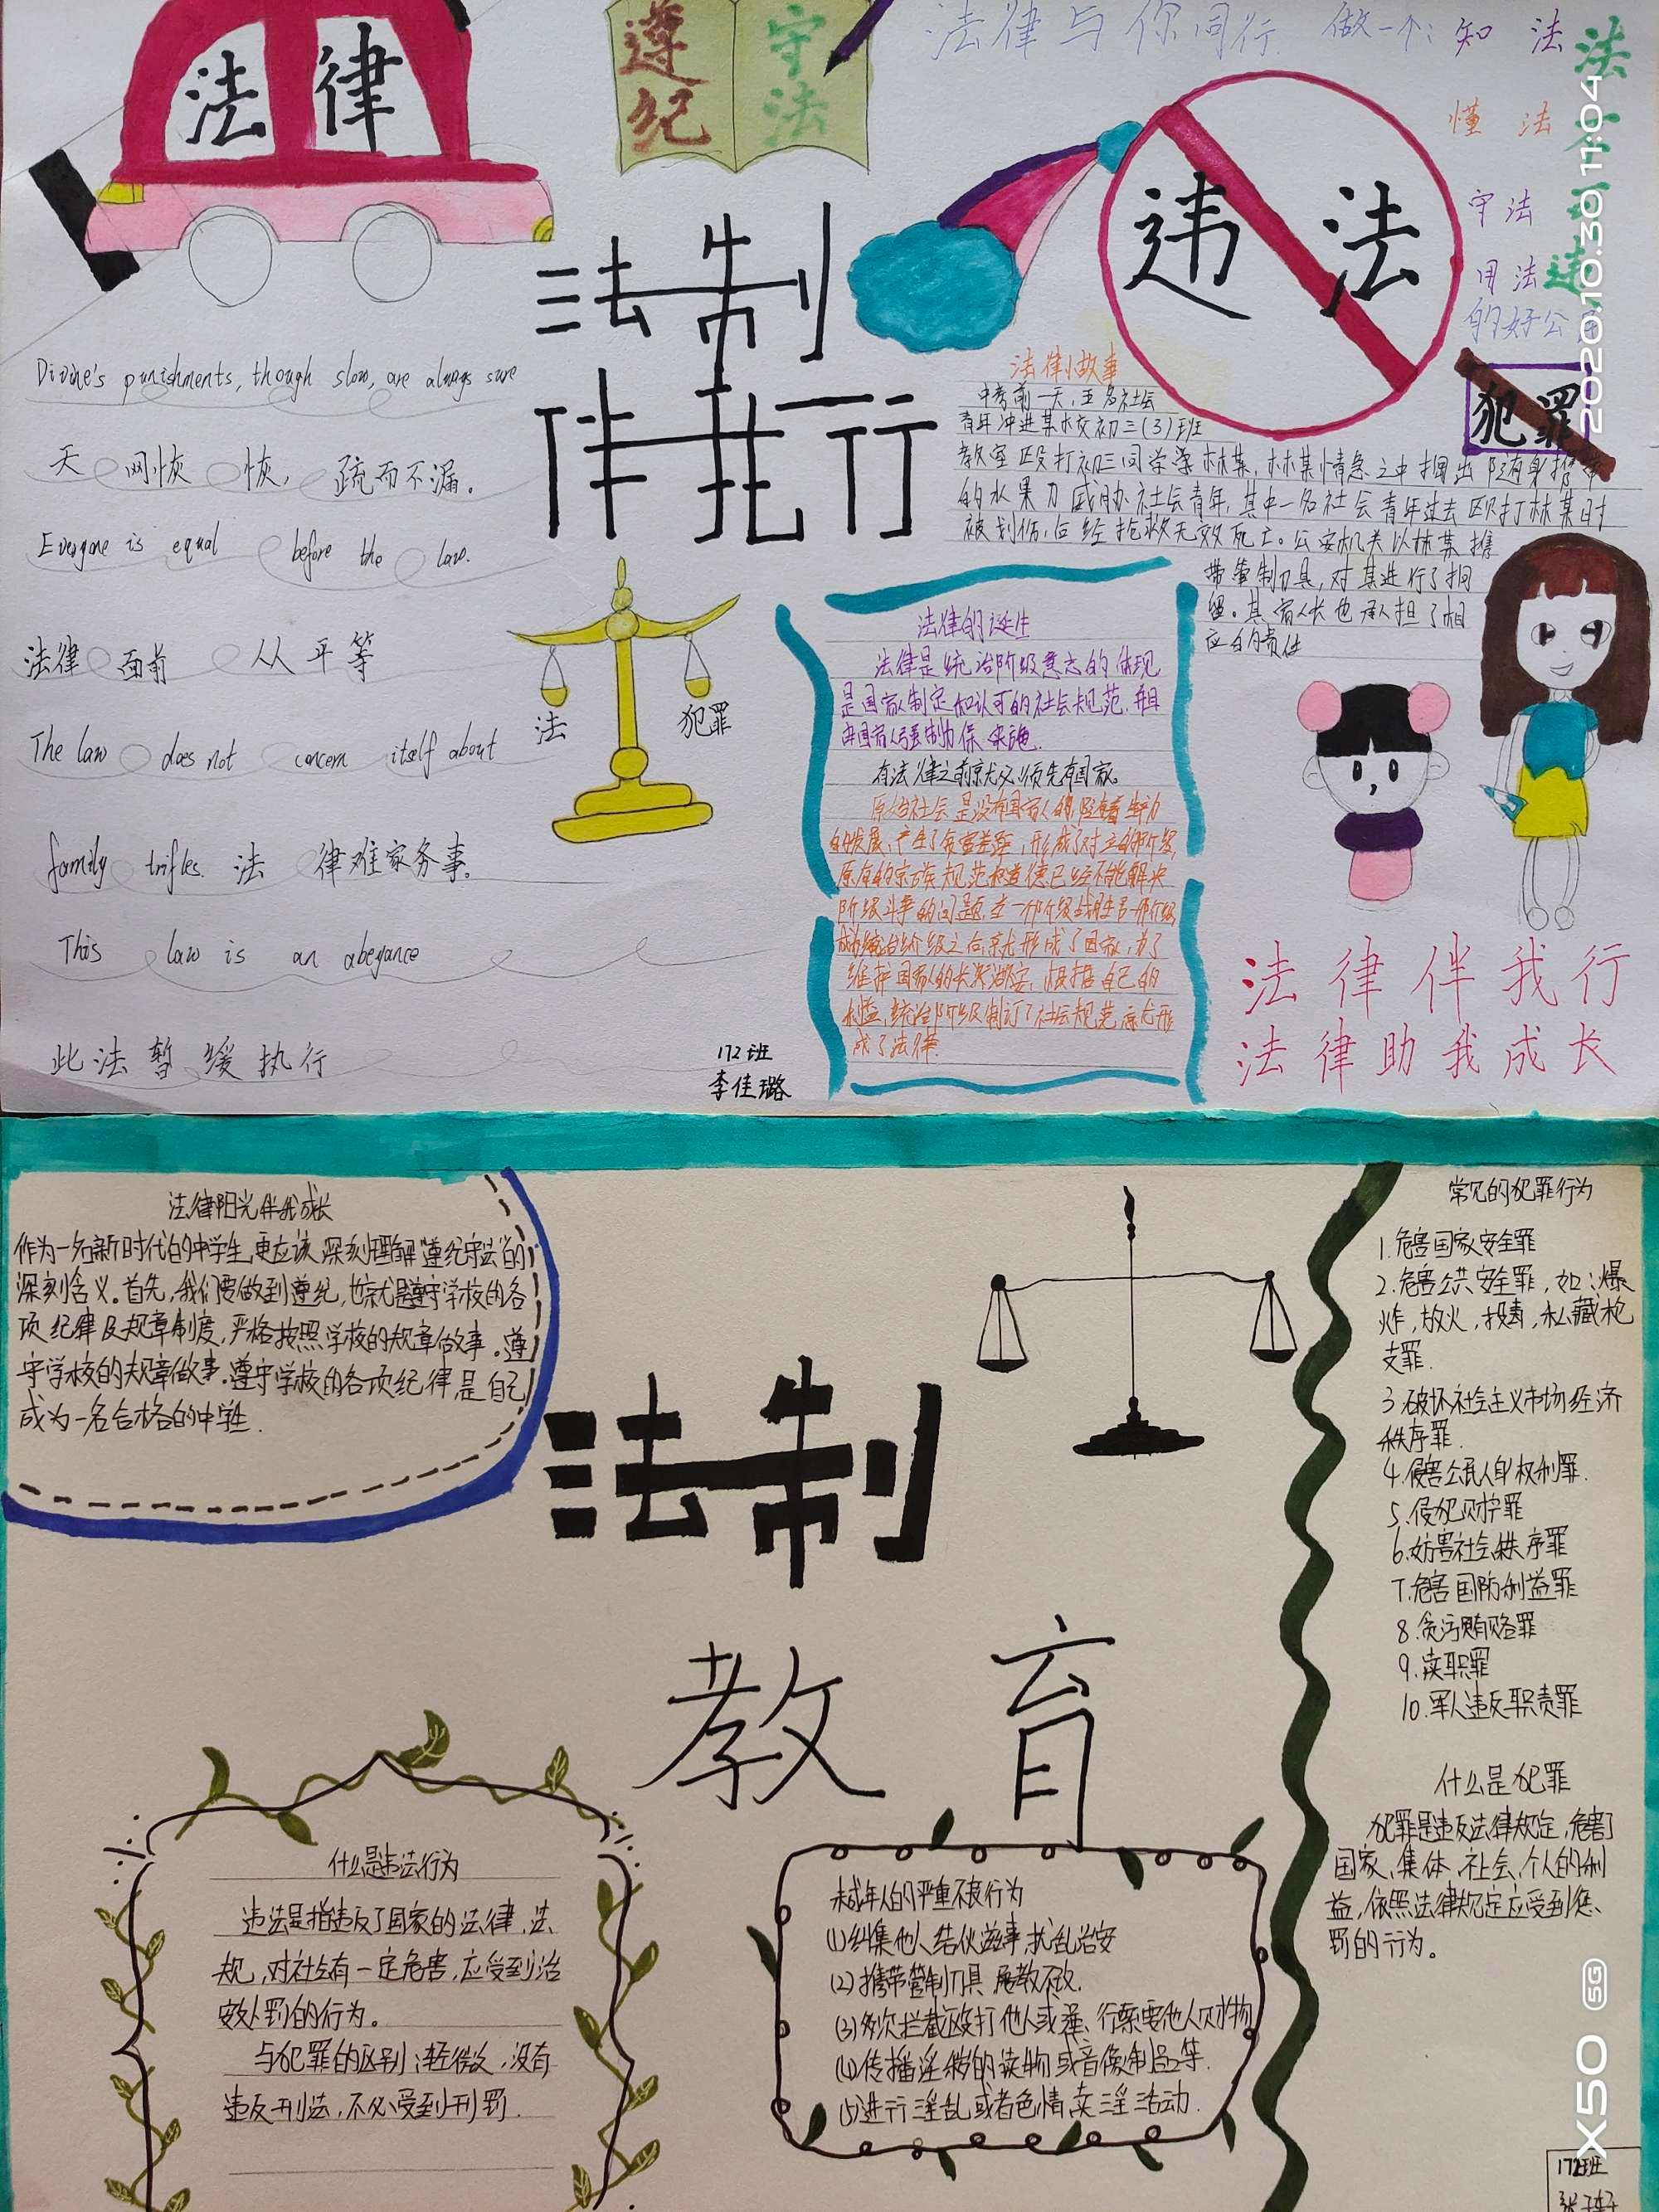 法律
遵纪
守法
法律与你同行 做一个：知法
懂法
守法
用法
的好公
违法
犯罪
法制
伴我行
Divine's punishments, though slow, are always sure
天网恢恢，疏而不漏。
Everyone is equal before the law.
法律面前 人人平等
The law does not concern itself about
family trifles. 法律难家务事。
This law is an abeyance
此法暂缓执行
法
犯罪
172班
李佳璐
法律小故事
中考前一天，五名社会
青年冲进某水校初三(3)班
教室殴打初三同学
林某，林某情急之中掏出随身携带
的水果刀威胁社会青年，其中一名社会青年过去殴打林某时
被划伤，后经抢救无效死亡。公安机关以林某携
带管制刀具，对其进行了拘
留。其家人长也承担了相
应的责任
法律的诞生
法律是统治阶级意志的体现
是国家制定和认可的社会规范，并且
由国家强制力保实施。
有法律之前就必须先有国家。
原始社会是没有国家的，随着生产力
的发展，产生了贫富差距，形成了对立的阶级，
原有的宗族规范和道德已经不能解决
阶级斗争的问题，在一个阶级战胜另一阶级
成为统治阶级之后就形成了国家，为了
维护国家的长治久安，根据自己的
利益，统治阶级制订了社会规范，就形
成了法律
法律伴我行
法律助我成长
2020.10.30 11:04
法律阳光伴我成长
作为一名新时代的中学生，更应该深刻理解“遵纪守法”的
深刻含义。首先，我们要做到遵纪，也就是遵守学校的各
项纪律及规章制度，严格按照学校的规章做事。遵
守学校的规章做事。遵守学校的各项纪律，是自己
成为一名合格的中学生.
法制
教育
常见的犯罪行为
1.危害国家安全罪
2.危害公共安全罪，如：爆
炸，放火，投毒，私藏枪
支罪.
3.破坏社会主义市场经济
秩序罪.
4.侵害公民人身权利罪.
5.侵犯财产罪
6.妨害社会秩序罪
7.危害国防利益罪
8.贪污贿赂罪
9.渎职罪
10.军人违反职责罪
什么是犯罪
犯罪是违反法律规定，危害了
国家、集体、社会、个人的利
益，依照法律规定应受到惩
罚的行为。
什么是违法行为
违法是指违反了国家的法律、法
规，对社会有一定危害，应受到治
安处罚的行为。
与犯罪的区别：轻微，没有
违反刑法，不必受到刑罚.
未成年人的严重不良行为
(1)纠集他人结伙滋事，扰乱治安
(2)携带管制刀具 屡教不改.
(3)多次拦截殴打他人或强行索要他人财物
(4)传播淫秽的读物或音像制品等.
(5)进行淫乱或者色情、卖淫活动.
172班
X50 5G